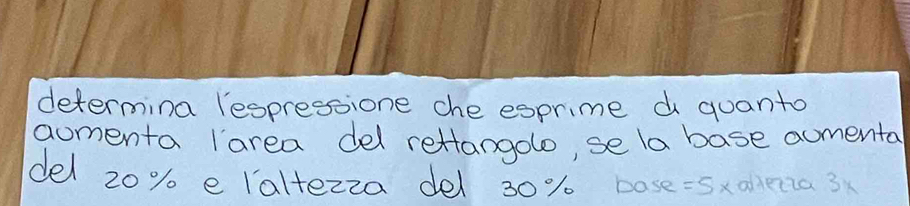 determina l'espressione che esprime di quanto
aumenta l'area del rettangolo, se la base aumenta
del 20% e l'altezza del 30% base = 5x altezza 3x